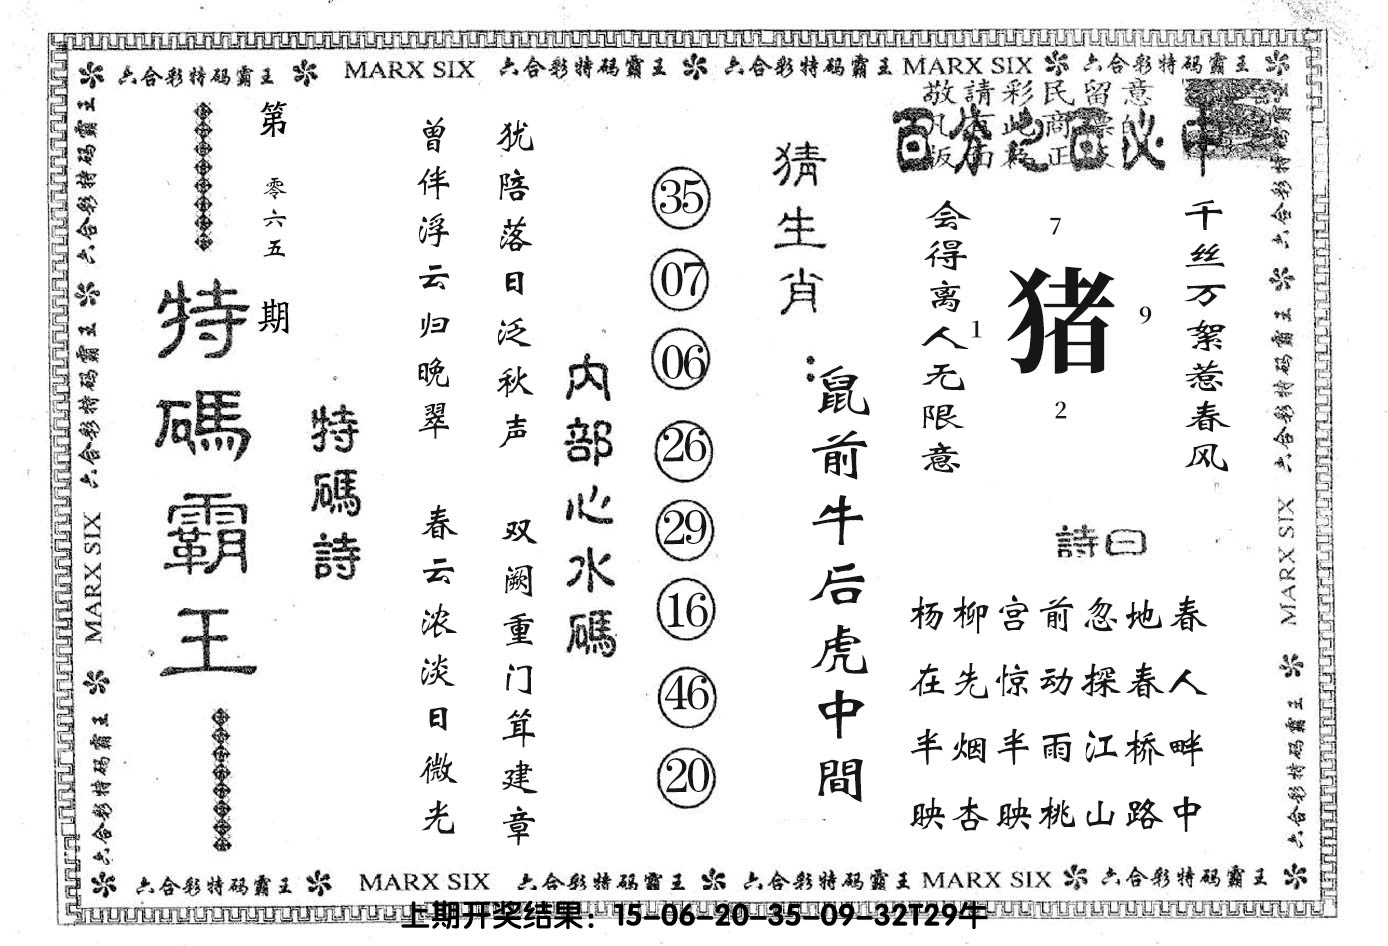 六合彩特码霸王 MARX SIX 六合彩特码霸王 六合彩特码霸王 MARX SIX 六合彩特码霸王
敬請彩民留意
百分之百必中
千丝万絮惹春风
会得离人无限意
7
1
猪
9
2
詩曰
杨柳宫前忽地春
在先惊动探春人
半烟半雨江桥畔
映杏映桃山路中
猜生肖：鼠前牛后虎中間
35
07
06
26
29
16
46
20
内部心水碼
犹陪落日泛秋声
双阙重门耸建章
曾伴浮云归晚翠
春云浓淡日微光
特碼詩
第零六五期
特碼霸王
六合彩特码霸王 六合彩特码霸王 MARX SIX 六合彩特码霸王
六合彩特码霸王 六合彩特码霸王 MARX SIX 六合彩特码霸王
六合彩特码霸王 MARX SIX 六合彩特码霸王 六合彩特码霸王 MARX SIX 六合彩特码霸王
上期开奖结果：15-06-20-35-09-32T29牛